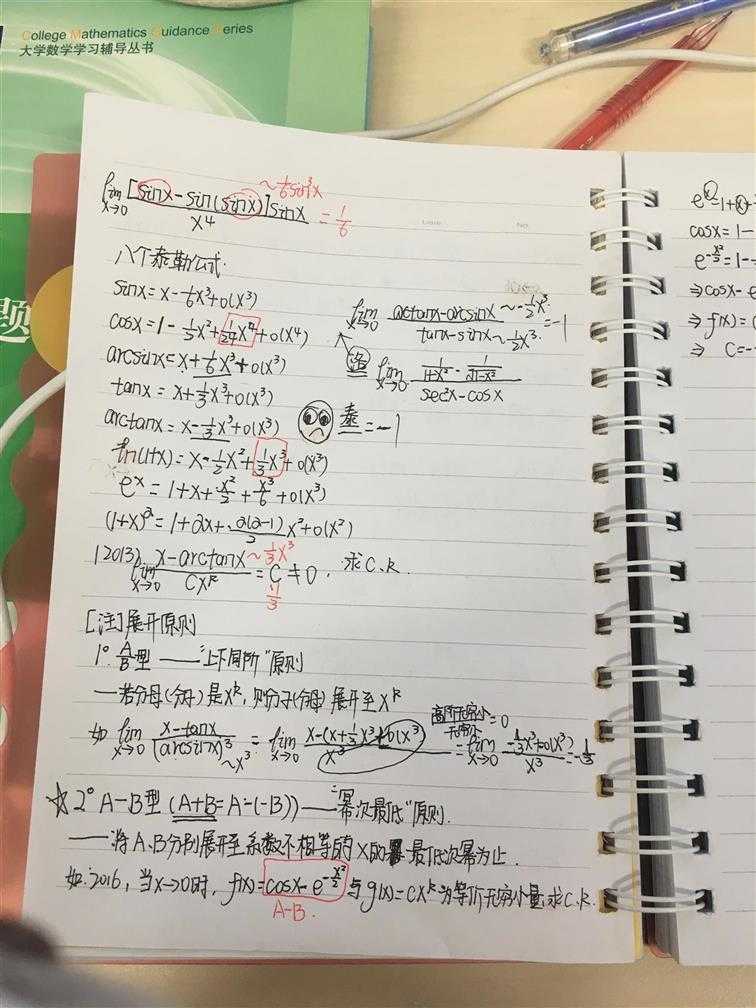 College Mathematics Guidance Series
大学数学学习辅导丛书
题
lim x→0 [sinx-sin(sinx)]sinx / x⁴ = 1/6
~1/6 sin³x
八个泰勒公式.
sinx=x-1/6x³+o(x³)
cosx=1-1/2x²+1/24x⁴+o(x⁴)
arcsinx=x+1/6x³+o(x³)
tanx=x+1/3x³+o(x³)
arctanx=x-1/3x³+o(x³)
ln(1+x)=x-1/2x²+1/3x³+o(x³)
eˣ=1+x+x²/2+x³/6+o(x³)
(1+x)ᵃ=1+ax+a(a-1)/2 x²+o(x²)
lim x→0 (arctanx-arcsinx ~ -1/2x³)/(tanx-sinx ~ 1/2x³) = -1
洛 lim x→0 (1/(1+x²) - 1/√(1-x²))/(sec²x-cosx)
泰=-1
(2013) lim x→0 (x-arctanx ~ 1/3x³)/(cxᵏ) = C≠0, 求C.k.
1/3
[注]展开原则
1°. A/B型——"上下同阶"原则
—若分母(分子)是xᵏ,则分子(分母)展开至xᵏ
如 lim x→0 (x-tanx)/(arcsinx)³ = lim x→0 (x-(x+1/3x³)+o(x³))/x³ = lim x→0 (-1/3x³+o(x³))/x³ = -1/3
~x³
高阶无穷小/无穷小=0
☆2° A-B型(A+B=A-(-B))——"幂次最低"原则.
——将A、B分别展开至系数不相等的x的最低次幂为止.
如:2016,当x→0时,f(x)=cosx-e^(-x²/2)与g(x)=cxᵏ为等价无穷小量,求C.k.
A-B.
cosx=1-
e^(-x²/2)=1-
⇒cosx-e
⇒f(x)=(
⇒C=-